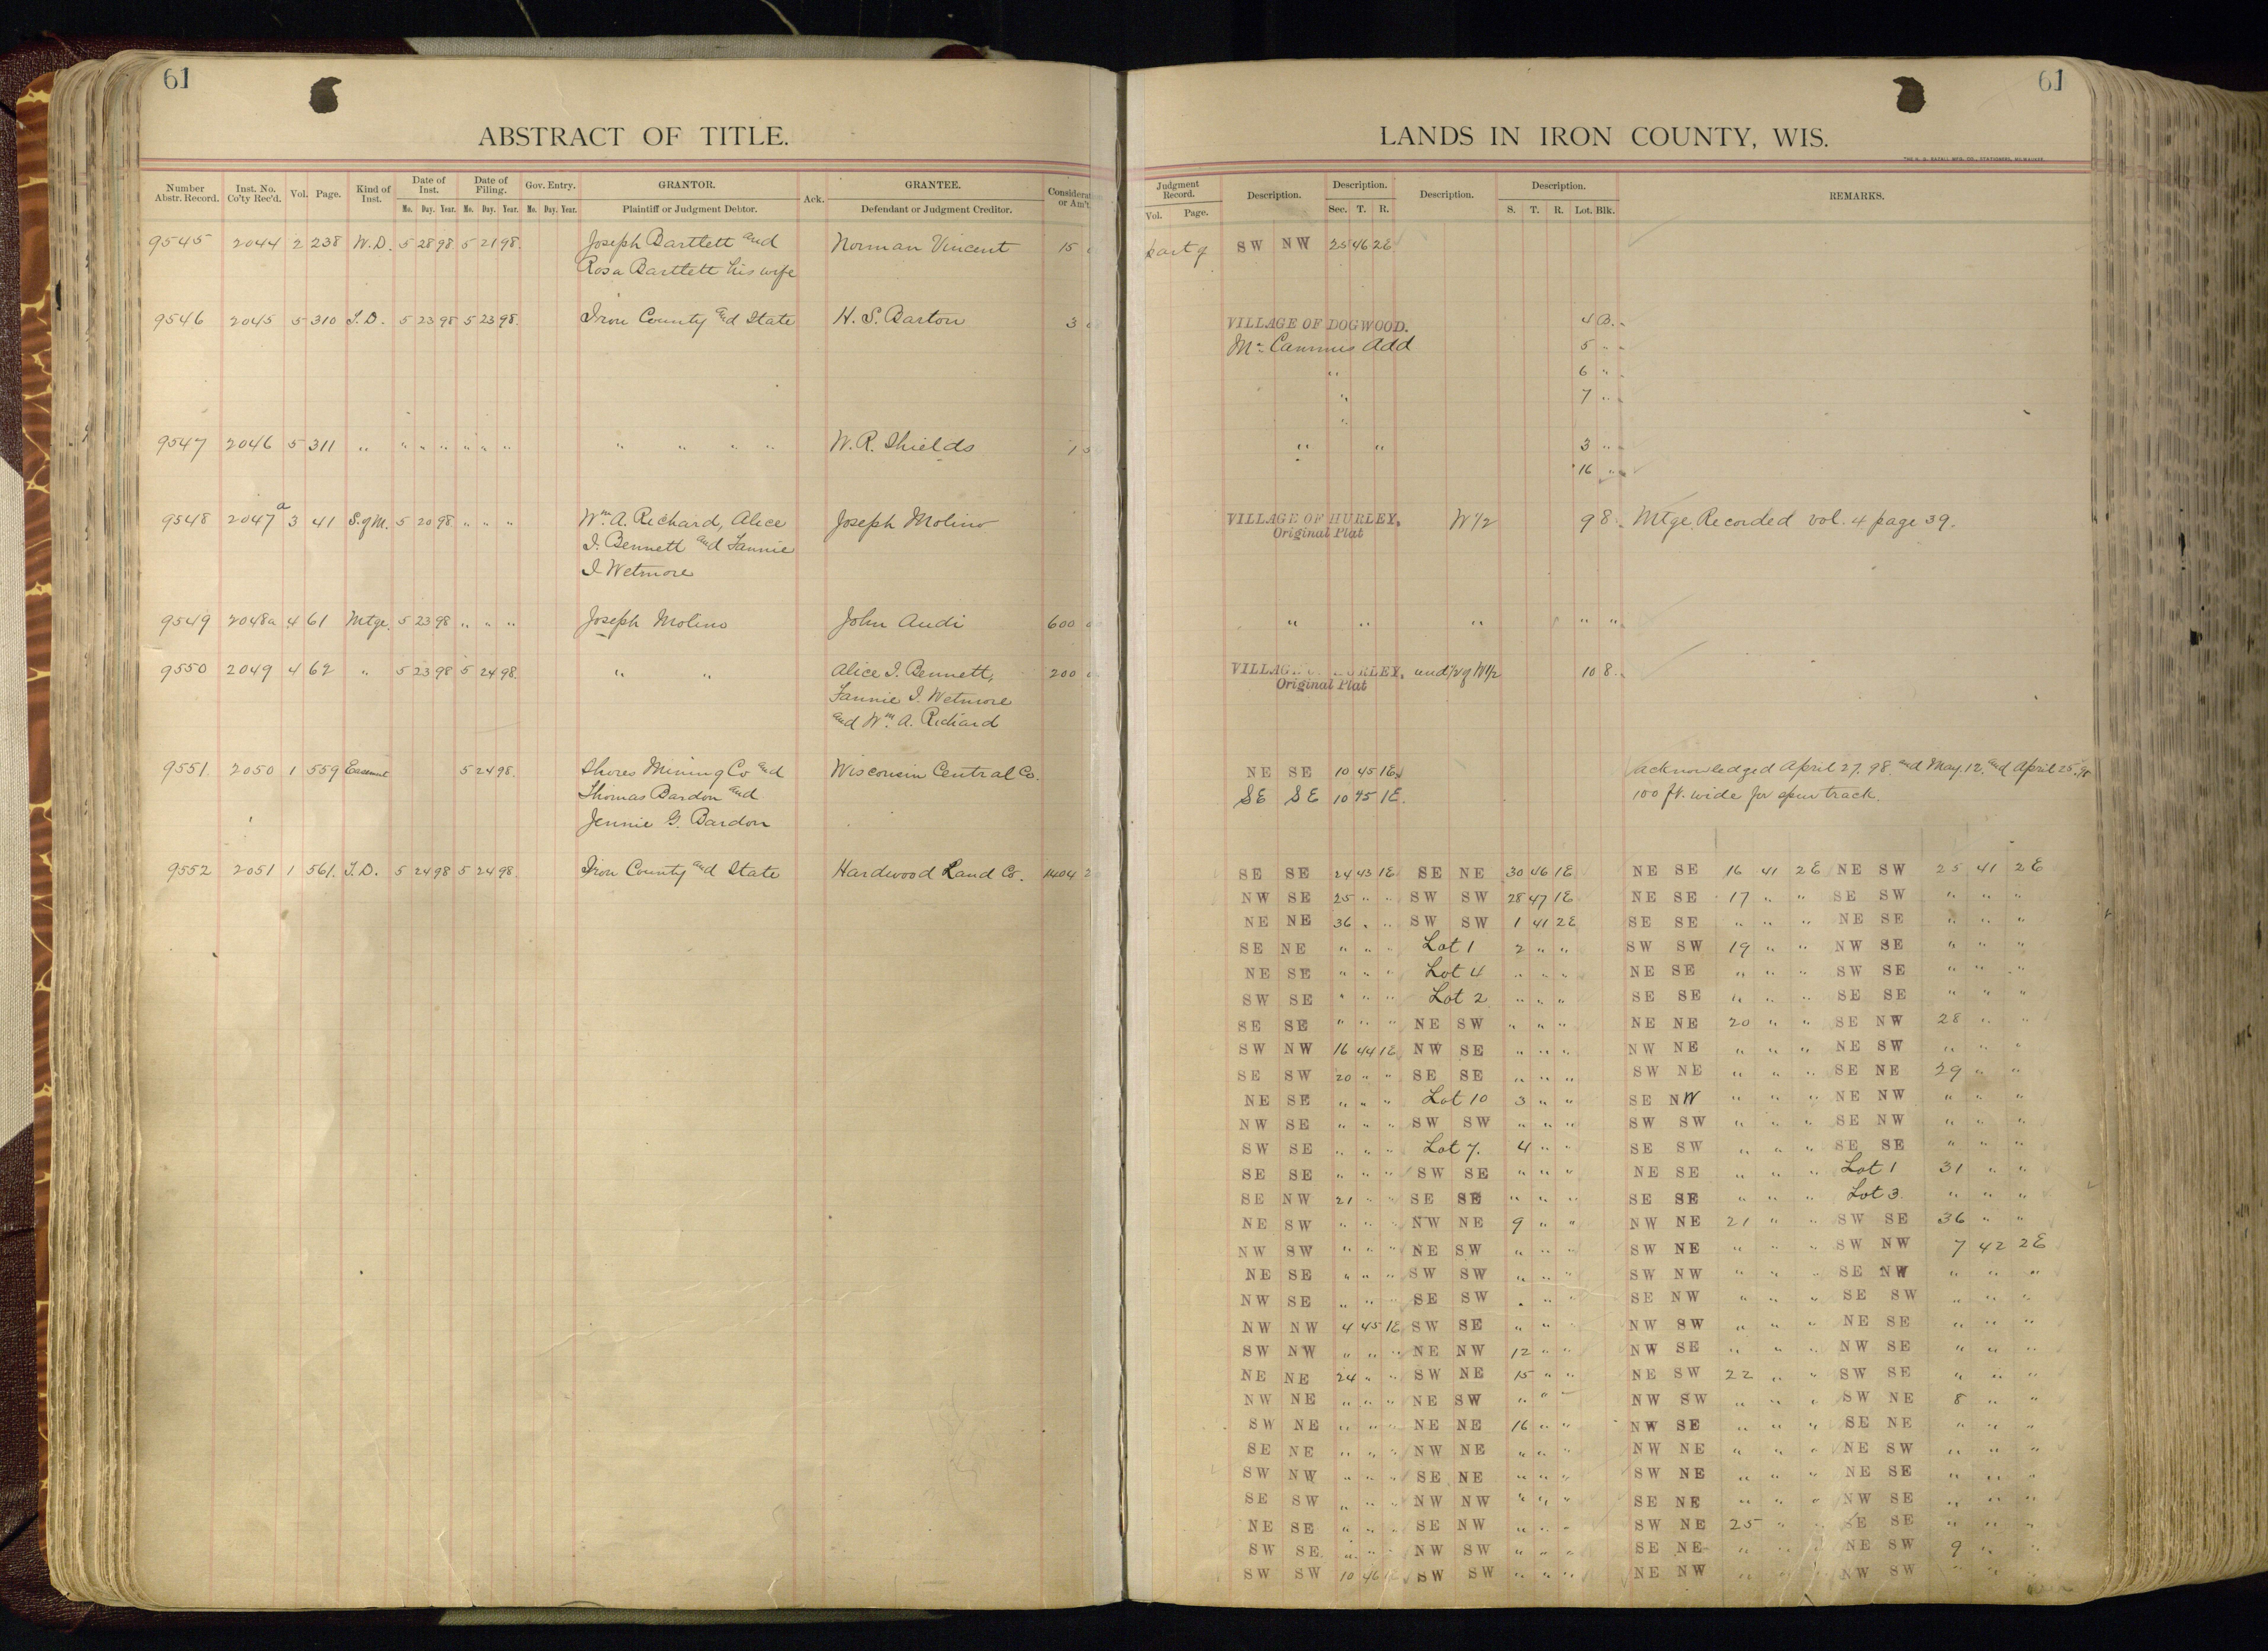 61
ABSTRACT OF TITLE.
Number Abstr. Record. Inst. No. Co'ty Rec'd. Vol. Page. Kind of Inst. Date of Inst. Date of Filing. Gov. Entry. GRANTOR. Ack. GRANTEE. Considerati or Am't.
Mo. Day. Year. Mo. Day. Year. Mo. Day. Year. Plaintiff or Judgment Debtor. Defendant or Judgment Creditor.
9545 2044 2 238 W.D. 5 28 98 5 21 98. Joseph Bartlett and Norman Vincent 15
Rosa Bartlett his wife
9546 2045 5 310 T.D. 5 23 98 5 23 98. Iron County and State H. S. Barton 3
9547 2046 5 311 " " " " " " " " " " " W. R. Shields 1
9548 2047a 3 41 S.of M. 5 20 98 " " " Wm. A. Richard, Alice Joseph Molino
I. Bennett and Fannie
I Wetmore
9549 2048a 4 61 Mtge. 5 23 98 " " " Joseph Molino John Audi 600
9550 2049 4 62 " 5 23 98 5 24 98. " " Alice I. Bennett, 200
Fannie I. Wetmore
and Wm. A. Richard
9551 2050 1 559 Easement 5 24 98. Shores Mining Co and Wisconsin Central Co.
Thomas Bardon and
Jennie G. Bardon
9552 2051 1 561. T.D. 5 24 98 5 24 98. Iron County and State Hardwood Land Co. 1404
61
LANDS IN IRON COUNTY, WIS.
Judgment Record. Description. Description. Description. Description. REMARKS.
Vol. Page. Sec. T. R. S. T. R. Lot. Blk.
part of SW NW 25 46 2E
VILLAGE OF DOGWOOD. 4 B.
Mc Cammis Add 5 "
" 6 "
" 7 "
"
" " 3 "
16 "
VILLAGE OF HURLEY, W 1/2 9 8. Mtge. Recorded vol. 4 page 39.
Original Plat
" " " " "
VILLAGE OF HURLEY, und 1/2 of W 1/2 10 8.
Original Plat
NE SE 10 45 1E. acknowledged April 27, 98. and May, 12, and April 25, 98
SE SE 10 45 1E. 100 ft. wide for spur track.
SE SE 24 43 1E SE NE 30 46 1E NE SE 16 41 2E NE SW 25 41 2E
NW SE 25 " " SW SW 28 47 1E NE SE 17 " " SE SW " " "
NE NE 36 " " SW SW 1 41 2E SE SE " " " NE SE " " "
SE NE " " " Lot 1 2 " " SW SW 19 " " NW SE " " "
NE SE " " " Lot 4 " " " NE SE " " " SW SE " " "
SW SE " " " Lot 2 " " " SE SE " " " SE SE " " "
SE SE " " " NE SW " " " NE NE 20 " " SE NW 28 " "
SW NW 16 44 1E NW SE " " " NW NE " " " NE SW " " "
SE SW 20 " " SE SE " " " SW NE " " " SE NE 29 " "
NE SE " " " Lot 10 3 " " SE NW " " " NE NW " " "
NW SE " " " SW SW " " " SW SW " " " SE NW " " "
SW SE " " " Lot 7. 4 " " SE SW " " " SE SE " " "
SE SE " " " SW SE " " " NE SE " " " Lot 1 31 " "
SE NW 21 " " SE SE " " " SE SE " " " Lot 3. " " "
NE SW " " " NW NE 9 " " NW NE 21 " " SW SE 36 " "
NW SW " " " NE SW " " " SW NE " " " SW NW 7 42 2E
NE SE " " " SW SW " " " SW NW " " " SE NW " " "
NW SE " " " SE SW " " " SE NW " " " SE SW " " "
NW NW 4 45 1E SW SE " " " NW SW " " " NE SE " " "
SW NW " " " NE NW 12 " " NW SE " " " NW SE " " "
NE NE 24 " " SW NE 15 " " NE SW 22 " " SW SE " " "
NW NE " " " NE SW " " " NW SW " " " SW NE 8 " "
SW NE " " " NE NE 16 " " NW SE " " " SE NE " " "
SE NE " " " NW NE " " " NW NE " " " NE SW " " "
SW NW " " " SE NE " " " SW NE " " " NE SE " " "
SE SW " " " NW NW " " " SE NE " " " NW SE " " "
NE SE " " " SE NW " " " SW NE 25 " " SE SE " " "
SW SE. " " " NW SW " " " SE NE " " " NE SW 9 " "
SW SW 10 46 SW SW " " " NE NW " " " NW SW " " "